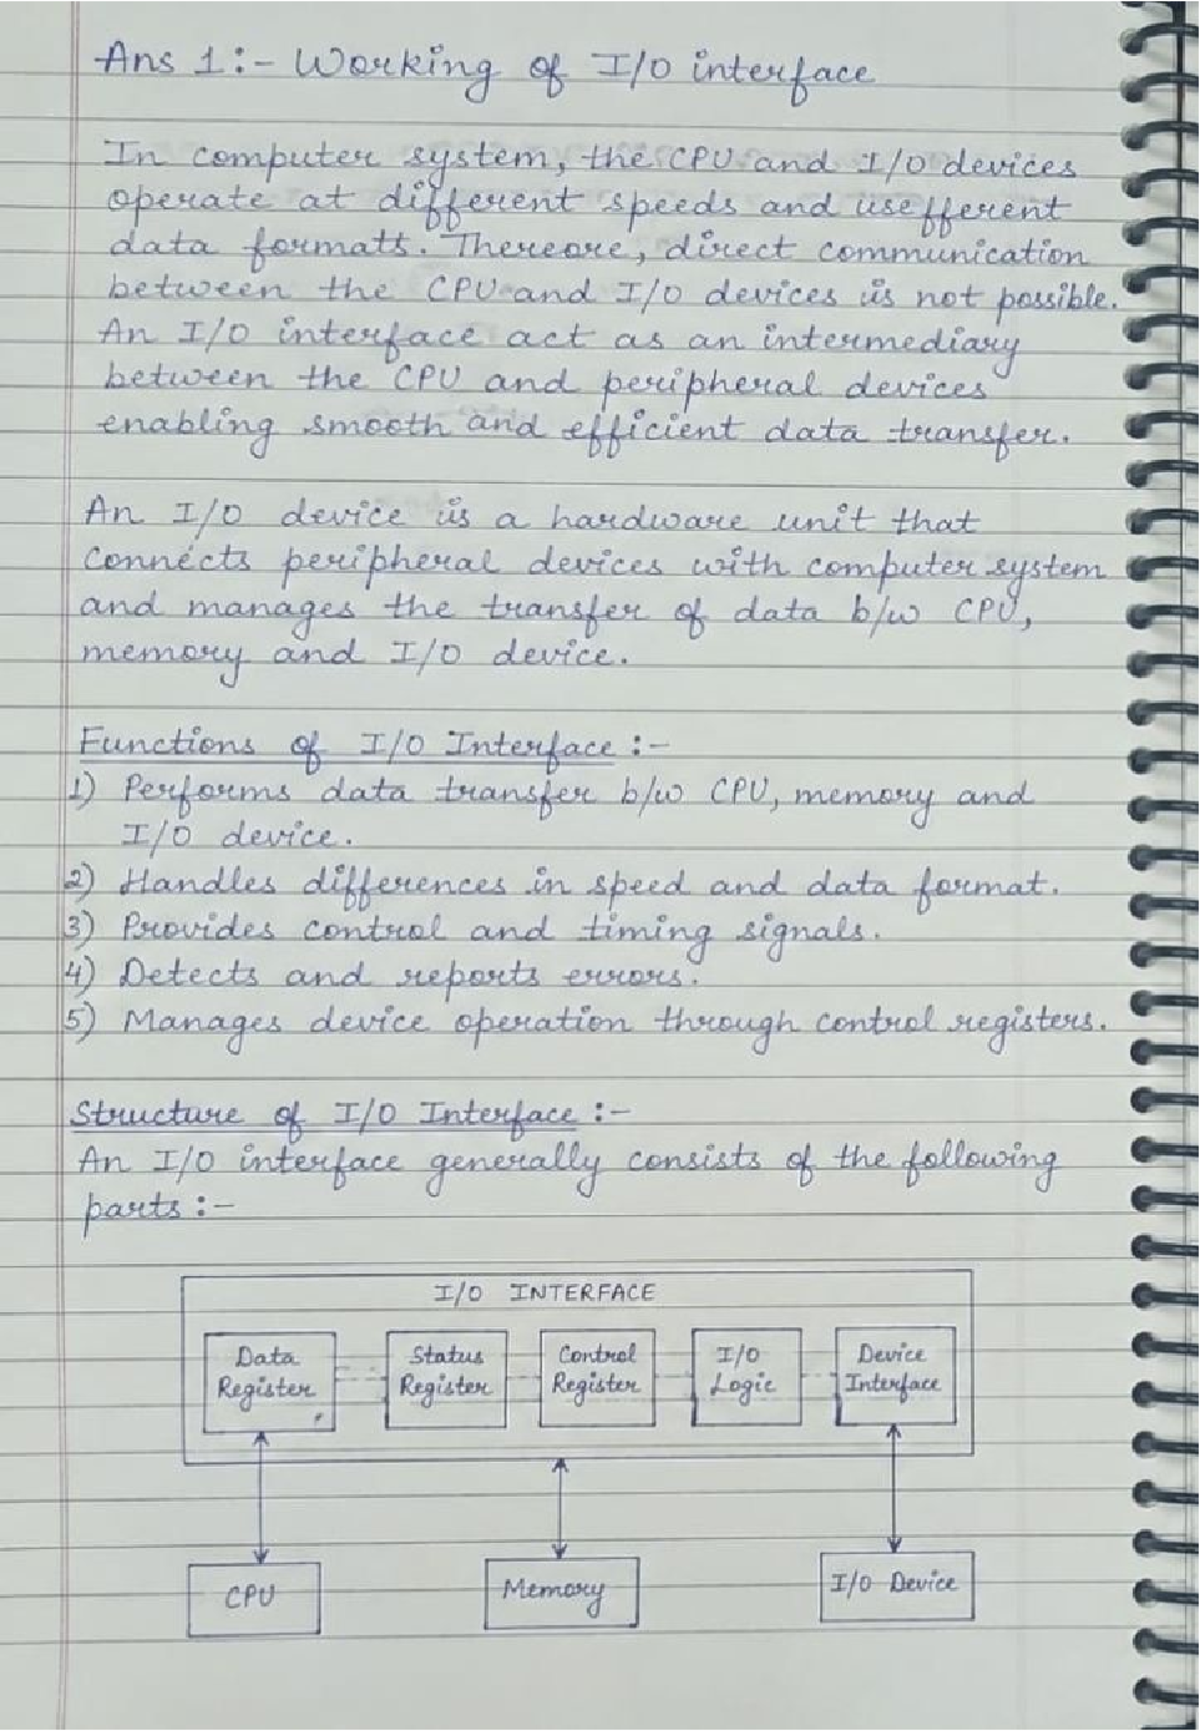 Ans 1:- Working of I/O interface
In computer system, the CPU and I/O devices
operate at different speeds and use fferent
data formatt. Thereore, direct communication
between the CPU and I/O devices is not possible.
An I/O interface act as an intermediary
between the CPU and peripheral devices
enabling smooth and efficient data transfer.
An I/O device is a hardware unit that
connects peripheral devices with computer system
and manages the transfer of data b/w CPU,
memory and I/O device.
Functions of I/O Interface :-
1) Performs data transfer b/w CPU, memory and
I/O device.
2) Handles differences in speed and data format.
3) Provides control and timing signals.
4) Detects and reports errors.
5) Manages device operation through control registers.
Structure of I/O Interface :-
An I/O interface generally consists of the following
parts :-
I/O INTERFACE
Data Register
Status Register
Control Register
I/O Logic
Device Interface
CPU
Memory
I/O Device